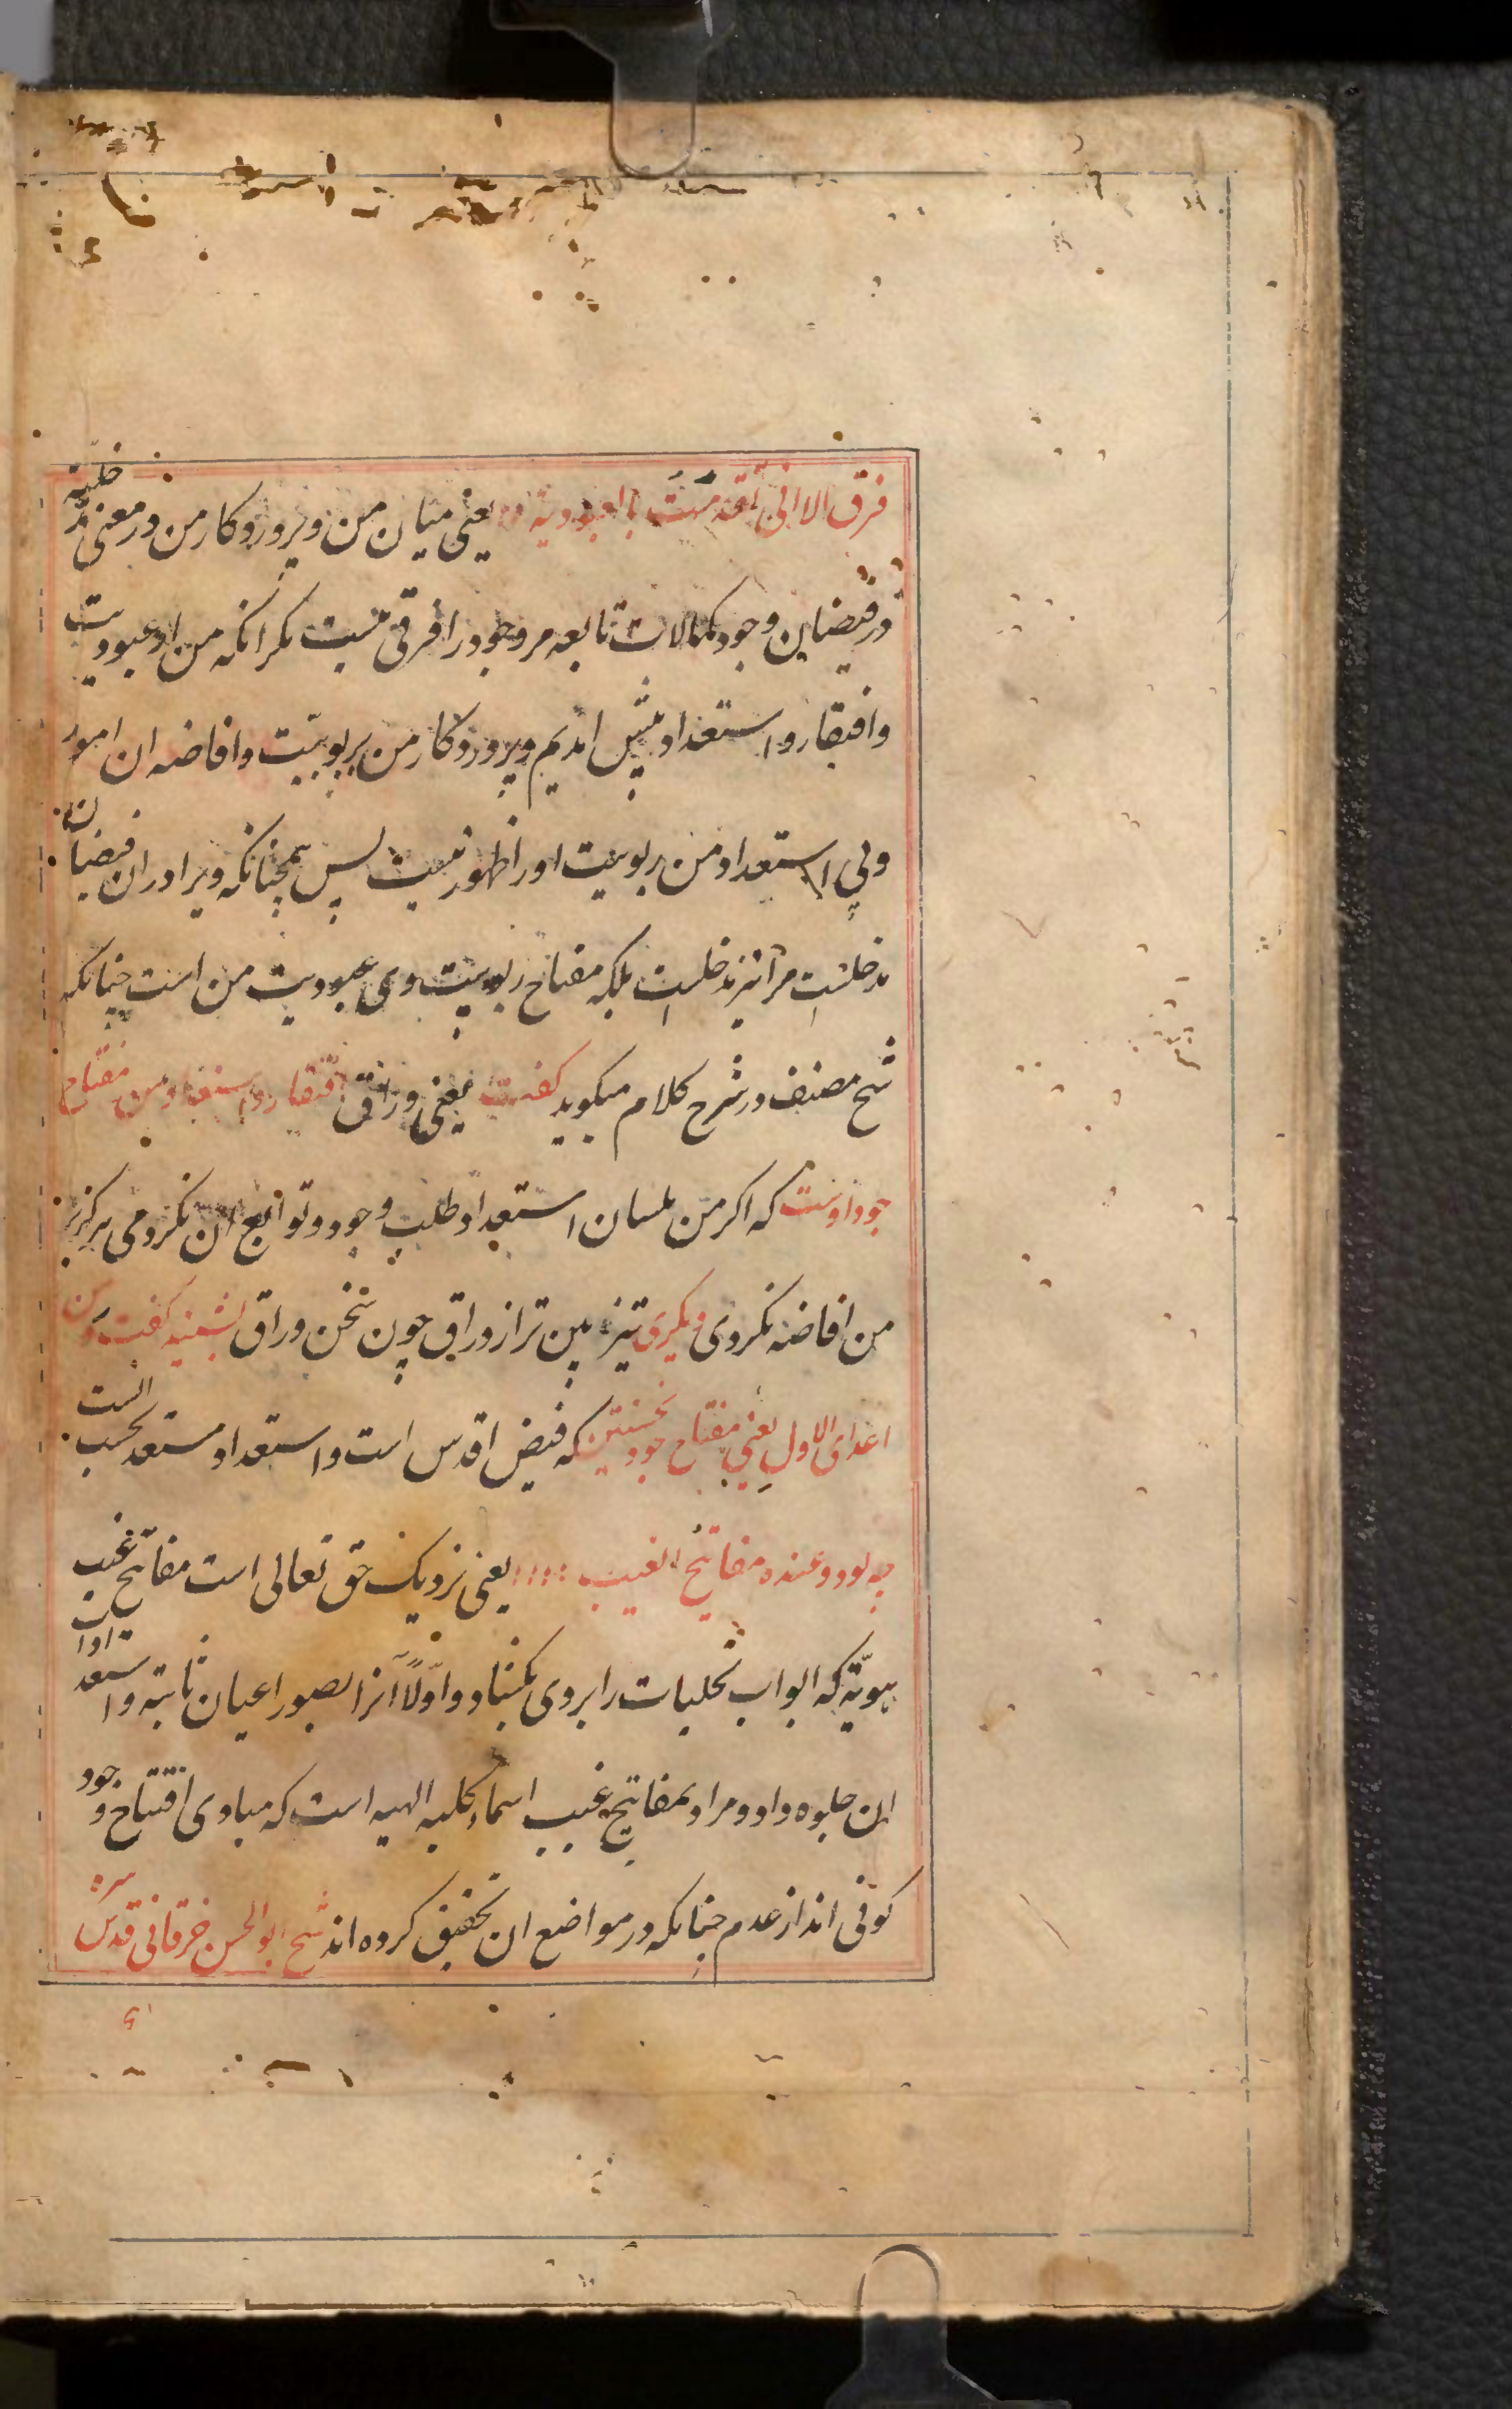 فرق الا انی تقدمت بالعبودیة یعنی میان من و پروردکار من در معنی مدخلیه
در فیضان وجود کمالات تابعه مر وجود را فرقی نیست مکر انکه من از عبودیت
و افتقار و استعداد پیش امدیم و پروردکار من بربوبیّت و افاضه ان امور
و بی استعداد من ربوبیت او را ظهور نیست پس همچنانکه ویرا در ان فیضان
مدخلست مرا نیز مدخلست بلکه مفتاح ربوبیت وی عبودیت من است چنانکه
شیخ مصنف در شرح کلام میکوید کفت یعنی وراق افتقار و استعداد من مفتاح
جود اوست که اکر من بلسان استعداد طلب وجود و توابع ان نکردمی هرکز بر
من افاضه نکردی دیکری تیزبین تر از وراق چون سخن وراق بشنید کفت و من
اعدای الاول یعنی مفتاح جود نخستین که فیض اقدس است و استعداد مستعد بحسب الست
چه بود و عنده مفاتیح الغیب یعنی نزدیک حق تعالی است مفاتیح غیب
هویّة که ابواب تجلیات را بروی بکشاد و اوّلاً آنرا بصور اعیان ثابته و استعدادات
ان جلوه داد و مراد بمفاتیح غیب اسماء کلیه الهیه است که مبادی افتتاح وجود
کونی اند از عدم چنانکه در مواضع ان تحقیق کرده اند شیخ ابو الحسن خرقانی قدس سره